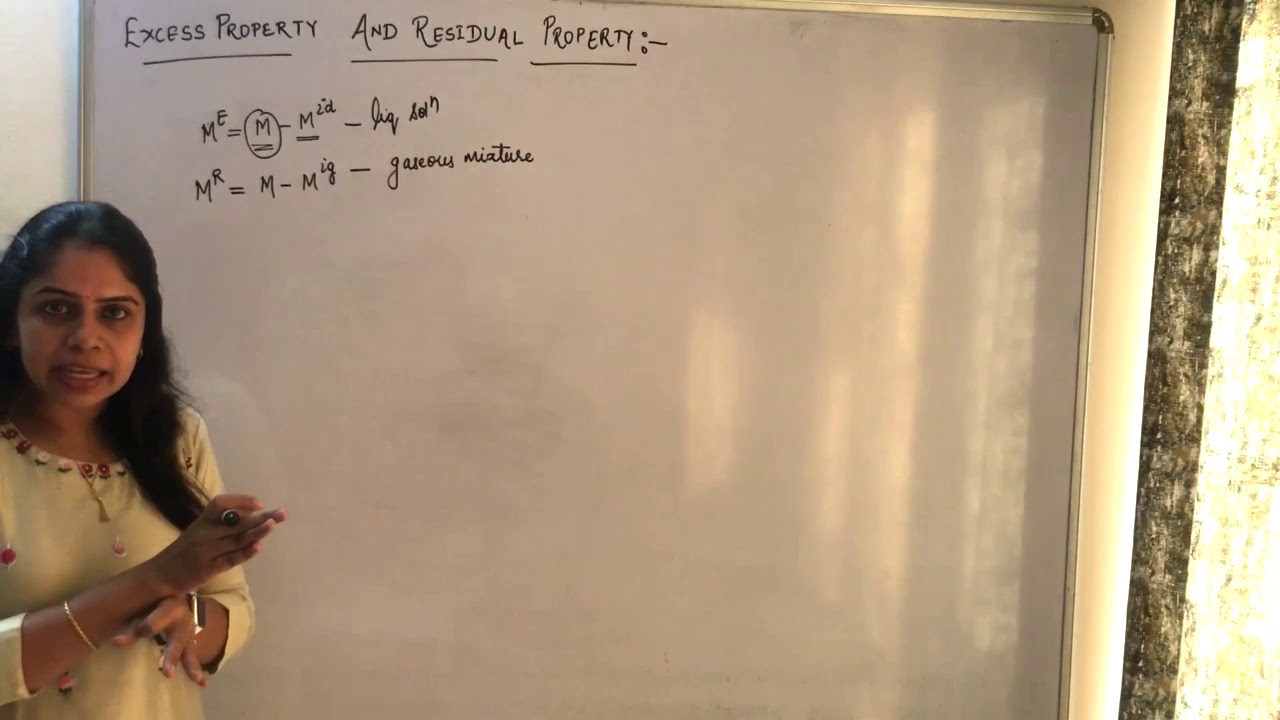 EXCESS PROPERTY AND RESIDUAL PROPERTY:-
M^E = M - M^id - liq sol^n
M^R = M - M^ig - gaseous mixture